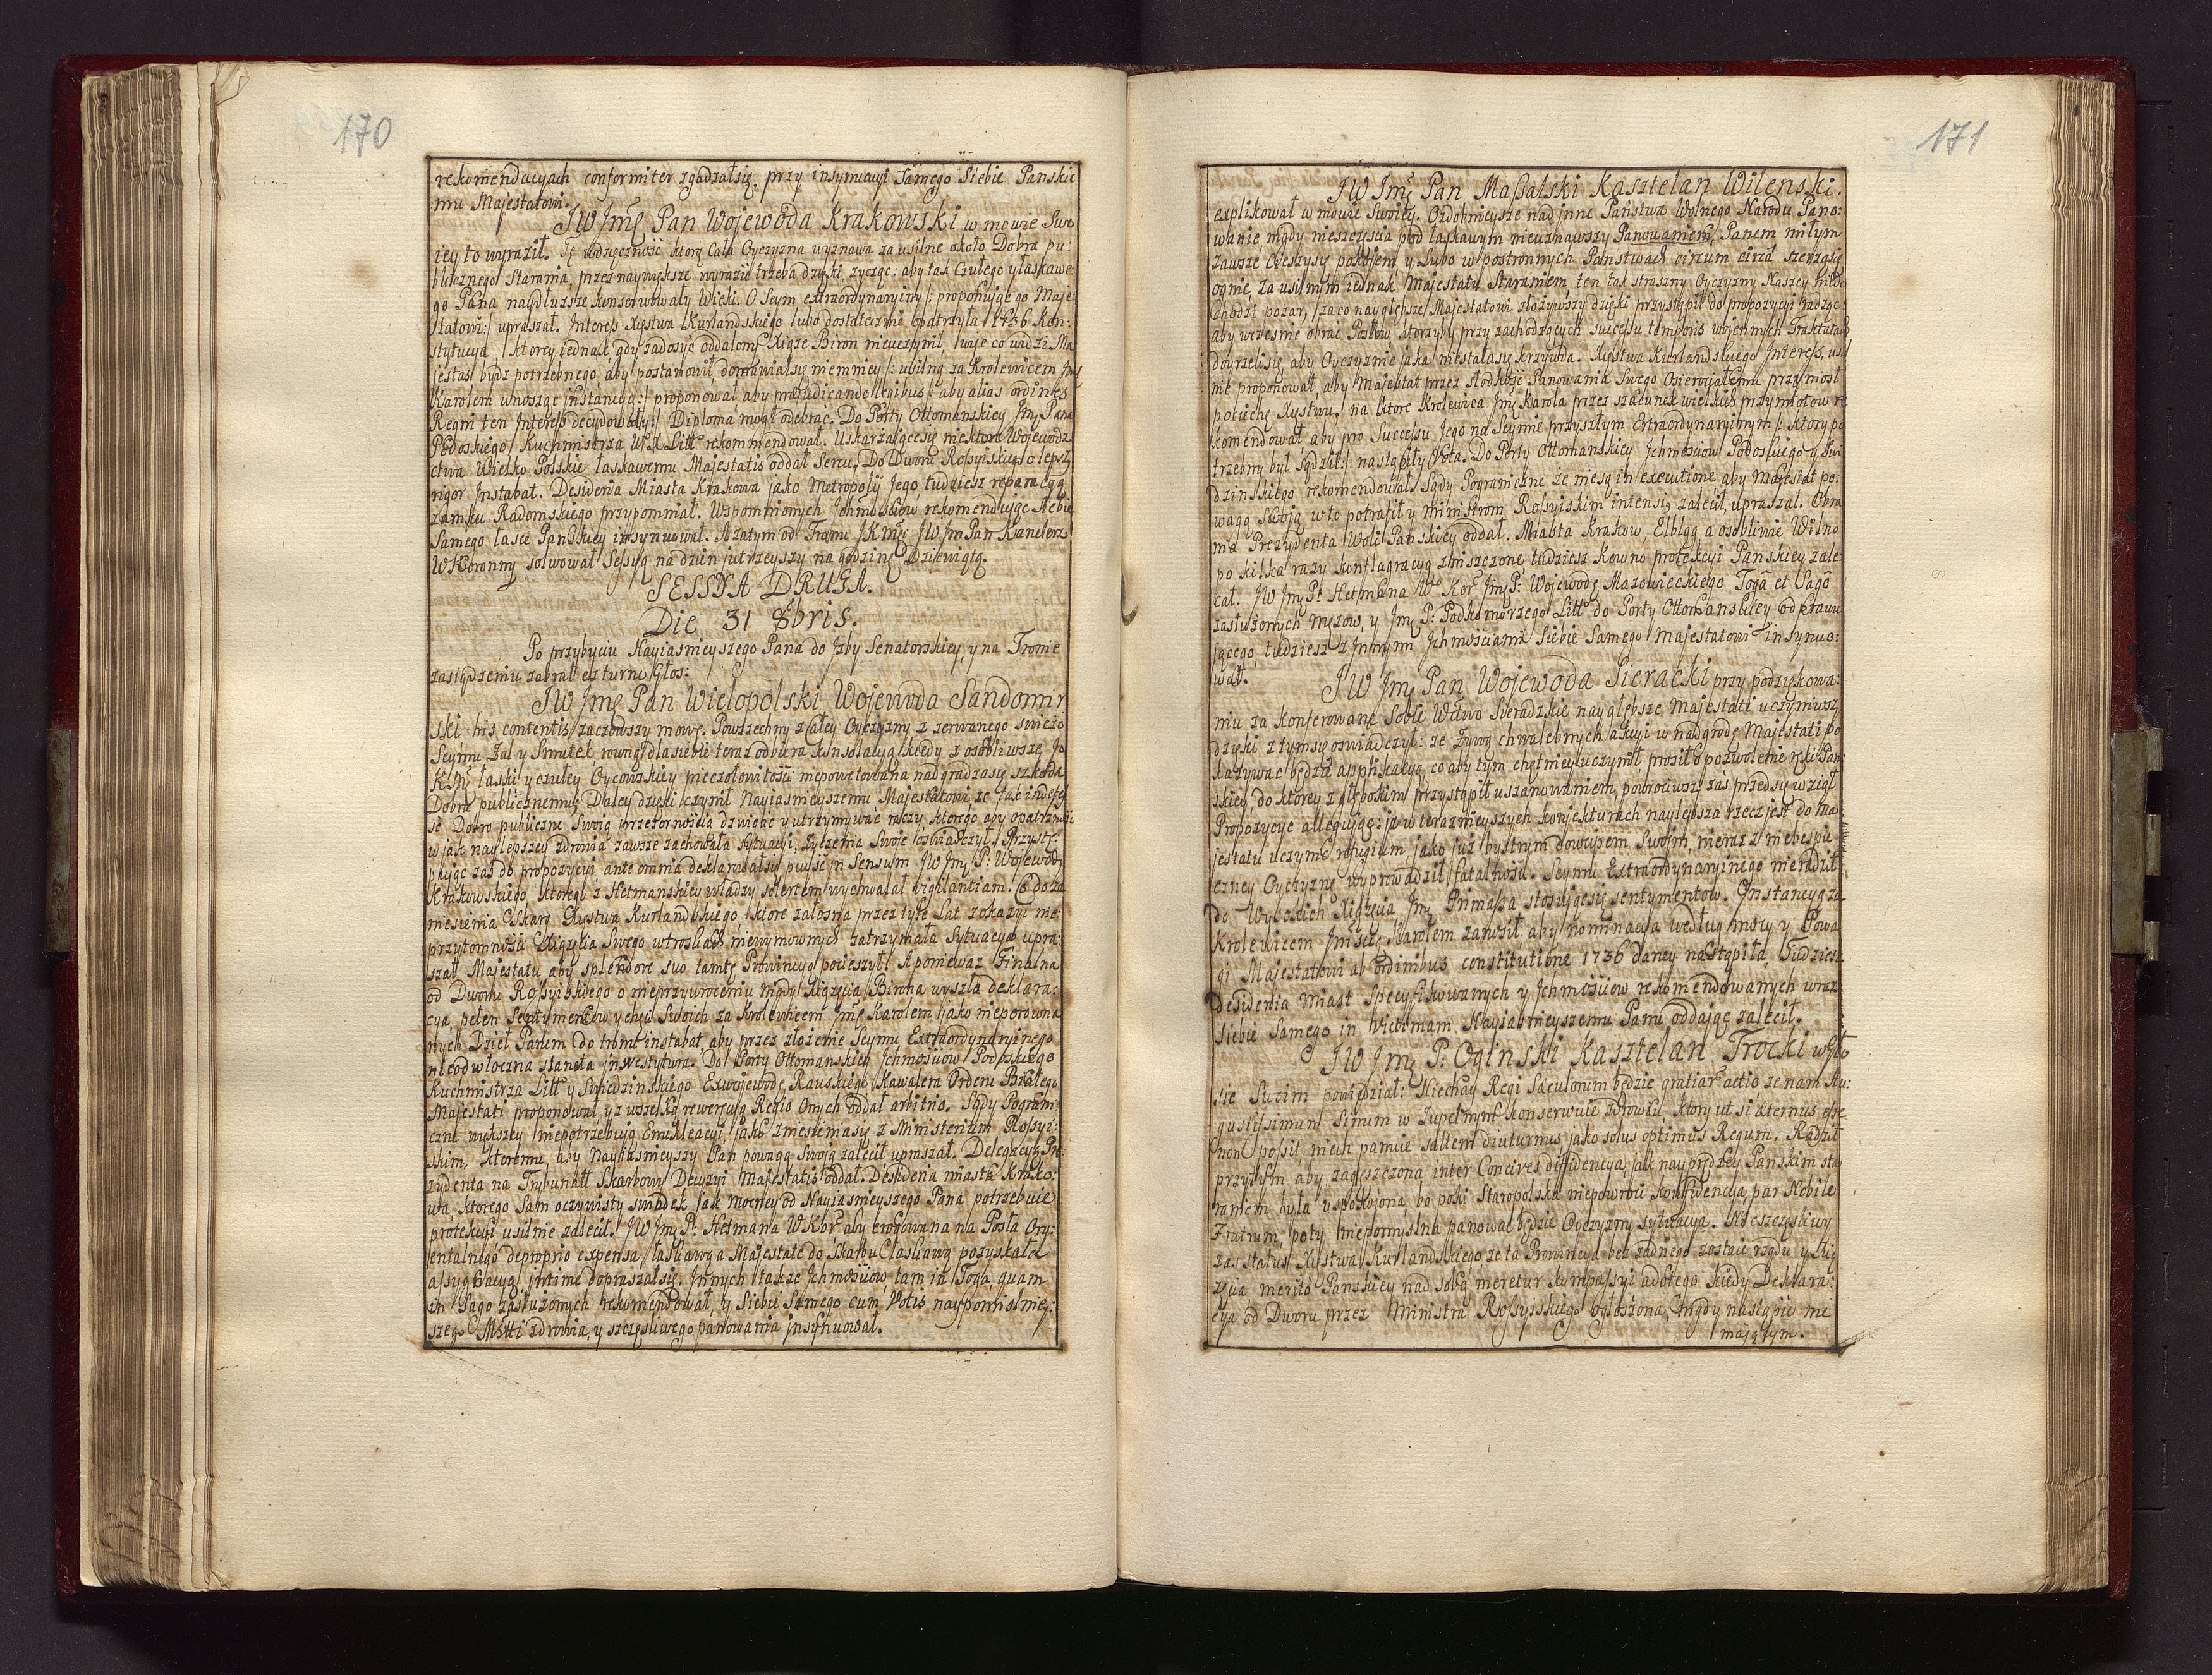 170
rekomendacyach conformiter zgadzał się, przy insynuacyi Samego Siebie Panskie
mu Majestatowi.
JW Jmę Pan Wojewoda Krakowski w mowie Swo
iey to wyraził. Tę wdzięczność ktorą Cała Oyczyzna wyznawa za usilne około Dobra pu:
blicznego Starania, przez naywiększe wyrazić trzeba dzięki zycząc: aby tak Czułego y łaskawe
go Pana naydłuzsze konserwowały Wieki. O Seym extraordynaryiny /: proponując go Maje
statowi:/ upraszał. Interess Xęstwa Kurlandskiego lubo dostatecznie opatrzyła 1736 Kon:
stytucya, ktorey jednak gdy zadosyć oddalony Xiąze Biron nieuczynił, więc co widzi Ma
jestas bydz potrzebnego, aby postanowił, domawiał się niemniey /: usilną za Krolewicem Jmę
Karolem wnosząc jnstancyą:/ proponował aby præjudicando legibus /: aby alias ordines
Regni ten Interess decydowały:/ Diploma mogł odebrac. Do Porty Ottomanskiey Jmę Pana
Podoskiego Kuchmistrza W. X. Litt. rekommendował. Uskarzaiące się niektore Wojewodz
ctwa Wielko Polskie łaskawemu Majestatis oddał Sercu. Do Dworu Rossyiskiego o lepszy
rigor Jnstabat. Desideria Miasta Krakowa jako Metropolij Jego, tudziesz reparacyą
zamku Radomskiego przypomniał. Wspomnionych Jchmościow rekomendując Siebie
Samego łasce Panskiey insynuował. A zatym od Tronu JKmci JW Jm Pan Kanclerz
W Koronny solwował Sessyą na dzien jutrzeyszy na godzinę Dziewiątą.
SESSYA DRUGA.
Die 31 8bris.
Po przybyciu Nayiasnieyszego Pana do Jzby Senatorskiey, y na Tronie
zasiądzeniu zabrał ex turno Głos:
JW Jmę Pan Wielopolski Wojewoda Sandomir
ski his contentis zaczowszy mowę. Powszechny z Całey Oyczyzny z zerwanego swiezo
Seymu Zal y Smutek, rowną dla siebie teraz odbiera konsolacyą kiedy z osobliwszey Jo
KMci łaski y czułey Oycowskiey pieczołowitości niepowetowana nadgradza się szkoda
Dobru publicznemu; Daley dzięki czynił Nayiasnieyszemu Majestatowi, ze tak indefes
se Dobro publiczne Swoią przezornością dzwigac y utrzymywać raczy, ktorego aby opatrzność
w jak naylepszey zdrowia zawsze zachowała Sytuacyi, zyczenia Swoje oswiadczył. Przystę:
pując zas do propozycyi ante omnia deklarował się pujść jn Sensum JW Jmę P: Wojewody
Krakowskiego, ktorego z Hetmanskiey władzy solertem wychwalał vigilantiam. Co do za
niesienia Skarg Xięstwa Kurlandskiego, ktore załosna przez tyle Lat z okazyi nie
przytomności Xiązęcia Swego w troskach niewymownych zatrzymała Sytuacya upra:
szał Majestatu, aby splendore suo tamtę Prowincyą pocieszył. A poniewaz Finalna
od Dworu Rossyiskiego o nieprzywroceniu nigdy Xiązęcia Birona wyszła deklara:
cya, pełen Sentymentow y chęci Swoich za Krolewicem Jmę Karolem jako nieporowna
nych Dzieł Panem do tronu instabat, aby przez złozenie Seymu Extraordynaryinego
nieodwłoczna stanęła jnwestytura. Do Porty Ottomanskiey Jchmościow Podoskiego
Kuchmistrza Litt. y Swiedzinskiego Exwojewodę Rawskiego, Kawalera Orderu Białego,
Majestati proponował, y z wszelką rewerencyą Regio Onych oddał arbitrio. Sądy Pogran
iczne większey niepotrzebują Enukleacyi, jako zniesienia się z Ministerium Rossyi:
skim, ktoremu aby Nayiasnieyszy Pan powagą Swoją zalecił upraszał. Delegacyą Pre
zydenta na Trybunał Skarbowy Decyzyi Majestatis oddał. Desideria miasta Krako:
wa, ktorego Sam oczywisty swiadek, jak mocney od Nayiasnieyszego Pana potrzebuie
protekcyi usilnie zalecił. JW Jmę P: Hetmana W Kor: aby erogowana na Posła Ory:
entalnego de proprio expensa, łaskawą a Majestate do Skarbu łaskawą pozyskała
assygnacyą jntime dopraszał się. Jnnych takze Jchmościow tam in Toga, quam
in Sago zasłuzonych rekomendował, y Siebie Samego cum Votis naypomyslniey:
szego Mtti zdrowia, y szczęsliwego panowania jnsynuował.
171
JW Jmę Pan Massalski Kasztelan Wilenski.
explikował w mowie Swoiey. Ozdobnieysze nad jnne Panstwa Wolnego Narodu Pano:
wanie nigdy nieszczęscia pod łaskawym nieuznawszy Panowaniem, Panem miłym
zawsze cieszy się pokojem, y lubo w postronnych Panstwach circum circa szerzą się
ognie, za usilnym jednak Majestatu Staraniem ten tak straszny Oyczyzny Naszey nie do
chodzi pozar, za co nayglębsze Majestatowi złozywszy dzięki przystąpił do propozycyi radząc
aby wczesnie obrac Posłow, ktorzyby przy zachodzących Successu temporis wojennych Traktatach
dojrzeli się, aby Oyczyznie jaka niestała się krzywda. Xięstwa Kurlandskiego Interess, usil
nie proponował, aby Majestat przez słodkość Panowania Swego Osierociałemu przyniosł
pociechę Xięstwu, na ktore Krolewica Jmę Karola przez szacunek wielkich przymiotow re
komendował aby pro Successu Jego na Seymie przyszłym Extraordynaryinym /: ktory po
trzebny byl sądził:/ nastąpiły Vota. Do Porty Ottomanskiey Jchmościow Podoskiego y Swi
dzinskiego rekomendował. Sądy Pograniczne że niesą in executione aby Majestat po:
wagą Swoją w to potrafił, y ministrom Rossyiskim intensię zalecił, upraszał. Obra
nia Prezydenta Woli Panskiey oddał. Miasta Krakow, Elbląg a osobliwie Wilno
po kilka razy konflagracyą zniszczone tudziesz Kowno protekcyi Panskiey zale
cał. JW Jmę Pt Hetmana W. Kor. Jmę P: Wojewodę Mazowieckiego Toga et Sago
zasłuzonych męzow, y Jmę P: Podkomorzego Litt. do Porty Ottomanskiey odprawu
jącego, tudziesz z Jnnymi Jchmościami Siebie Samego Majestatowi insynuo:
wał.
JW Jmę Pan Wojewoda Sieracki przy podziękowa:
niu za konferowane Sobie Wctwo Sieradzkie nayglębsze Majestati uczyniwszy
dzięki z tym się oswiadczył: ze Zywą chwalebnych akcyi w nadgrodę Majestati po
kazywac będzie applikacyą, co aby tym chętniey uczynił prosił o pozwolenie ręki Pan
skiey do ktorey z głębokim przystąpił uszanowaniem, powrociwszy zaś przedsięwzioł
Propozycye allegując: ja w terazmieyszych konjekturach naylepsza rzecz jest do Ma
jestatu uczynic refugium jako juz bystrym dowcipem Swoim nieraz z niebespie
czney Oyczyznę wyprowadził fatalności. Seymu Extraordynaryinego nieradził
do Wysokich Xiązęcia Jmę Primassa stosujęcsię sentymentow. Jnstancyą za
Krolewicem Jmścię Karolem zanosił, aby nominacya według mocy y Powa
gi Majestatowi ab ordinibus constitutione 1736 daney nastąpiła, Tudziesz
Desideria miast Specyfikowanych y Jchmościow rekomendowanych wraz
siebie Samego in Victimam Nayiasnieyszemu Panu oddając zalecił.
JW Jmę P: Oginski Kasztelan Trocki w gło
sie Swoim powiedział: Niechay Regi Sæculorum będzie gratiar: actio ze nam Au:
gustissimum Simum w zupełnym konserwuie zdrowiu, ktory ut si æternus esse
non possit niech panuie saltem diuturnus, jako solus optimus Regum. Radził
przytym aby zagęszczona inter Concives diffidencya, jak nayprędzey Panskim sta
raniem była uspokojona, bo poki Staropolska niepowroci konfidencya, par Nobile
Fratrum, poty niepomyslna panowac będzie Oyczyzny sytuacya. Nieszczęsliwy
zas status Xięstwa Kurlandskiego ze ta Prowincya bez zadnego zostaie rządu y Xią
zęcia merito Panskiey nad sobą meretur kompassyi, a do tego kiedy Deklara:
cya od Dworu przez Ministra Rossyiskiego ogłoszona, nigdy nastąpic nie
mającym.